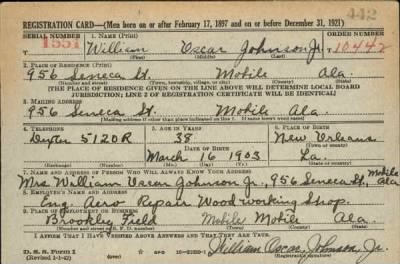 442
REGISTRATION CARD—(Men born on or after February 17, 1897 and on or before December 31, 1921)
SERIAL NUMBER 1. NAME (Print) ORDER NUMBER
1551 William Oscar Johnson Jr. 10442
(First) (Middle) (Last)
2. PLACE OF RESIDENCE (Print)
956 Seneca St. Mobile Ala.
(Number and street) (Town, township, village, or city) (County) (State)
[THE PLACE OF RESIDENCE GIVEN ON THE LINE ABOVE WILL DETERMINE LOCAL BOARD
JURISDICTION; LINE 2 OF REGISTRATION CERTIFICATE WILL BE IDENTICAL]
3. MAILING ADDRESS
956 Seneca St. Mobile Ala.
[Mailing address if other than place indicated on line 2. If same insert word same]
4. TELEPHONE 5. AGE IN YEARS 6. PLACE OF BIRTH
Dexter 5120R 38 New Orleans
DATE OF BIRTH (Town or county)
March 16 1903 La.
(Exchange) (Number) (Mo.) (Day) (Yr.) (State or country)
7. NAME AND ADDRESS OF PERSON WHO WILL ALWAYS KNOW YOUR ADDRESS
Mrs William Oscar Johnson Jr., 956 Seneca St., Mobile Ala
8. EMPLOYER'S NAME AND ADDRESS
Eng. Aero Repair Wood working Shop.
9. PLACE OF EMPLOYMENT OR BUSINESS
Brookley Field Mobile Mobile Ala.
(Number and street or R. F. D. number) (Town) (County) (State)
I AFFIRM THAT I HAVE VERIFIED ABOVE ANSWERS AND THAT THEY ARE TRUE.
D. S. S. Form 1
(Revised 1-1-42) (over) William Oscar Johnson Jr.